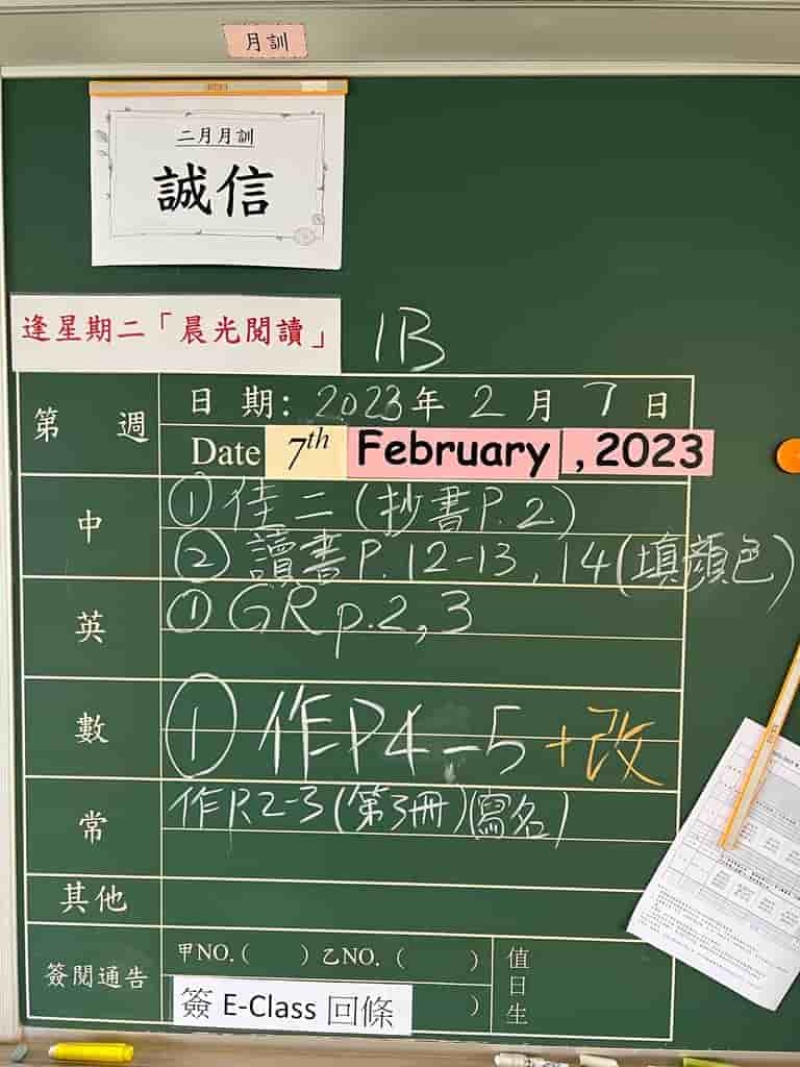 月訓
二月月訓
誠信
逢星期二「晨光閱讀」
1B
第 週
日 期: 2023年 2 月 7 日
Date 7th February , 2023
中
① 佳二 (抄書P.2)
② 讀書P. 12-13 , 14(填顏色)
英
① GR p.2, 3
數
① 作P4-5 +改
常
作P.2-3(第3冊)(寫名)
其他
簽閱通告
甲NO.( ) 乙NO. ( )
)
簽 E-Class 回條
值日生